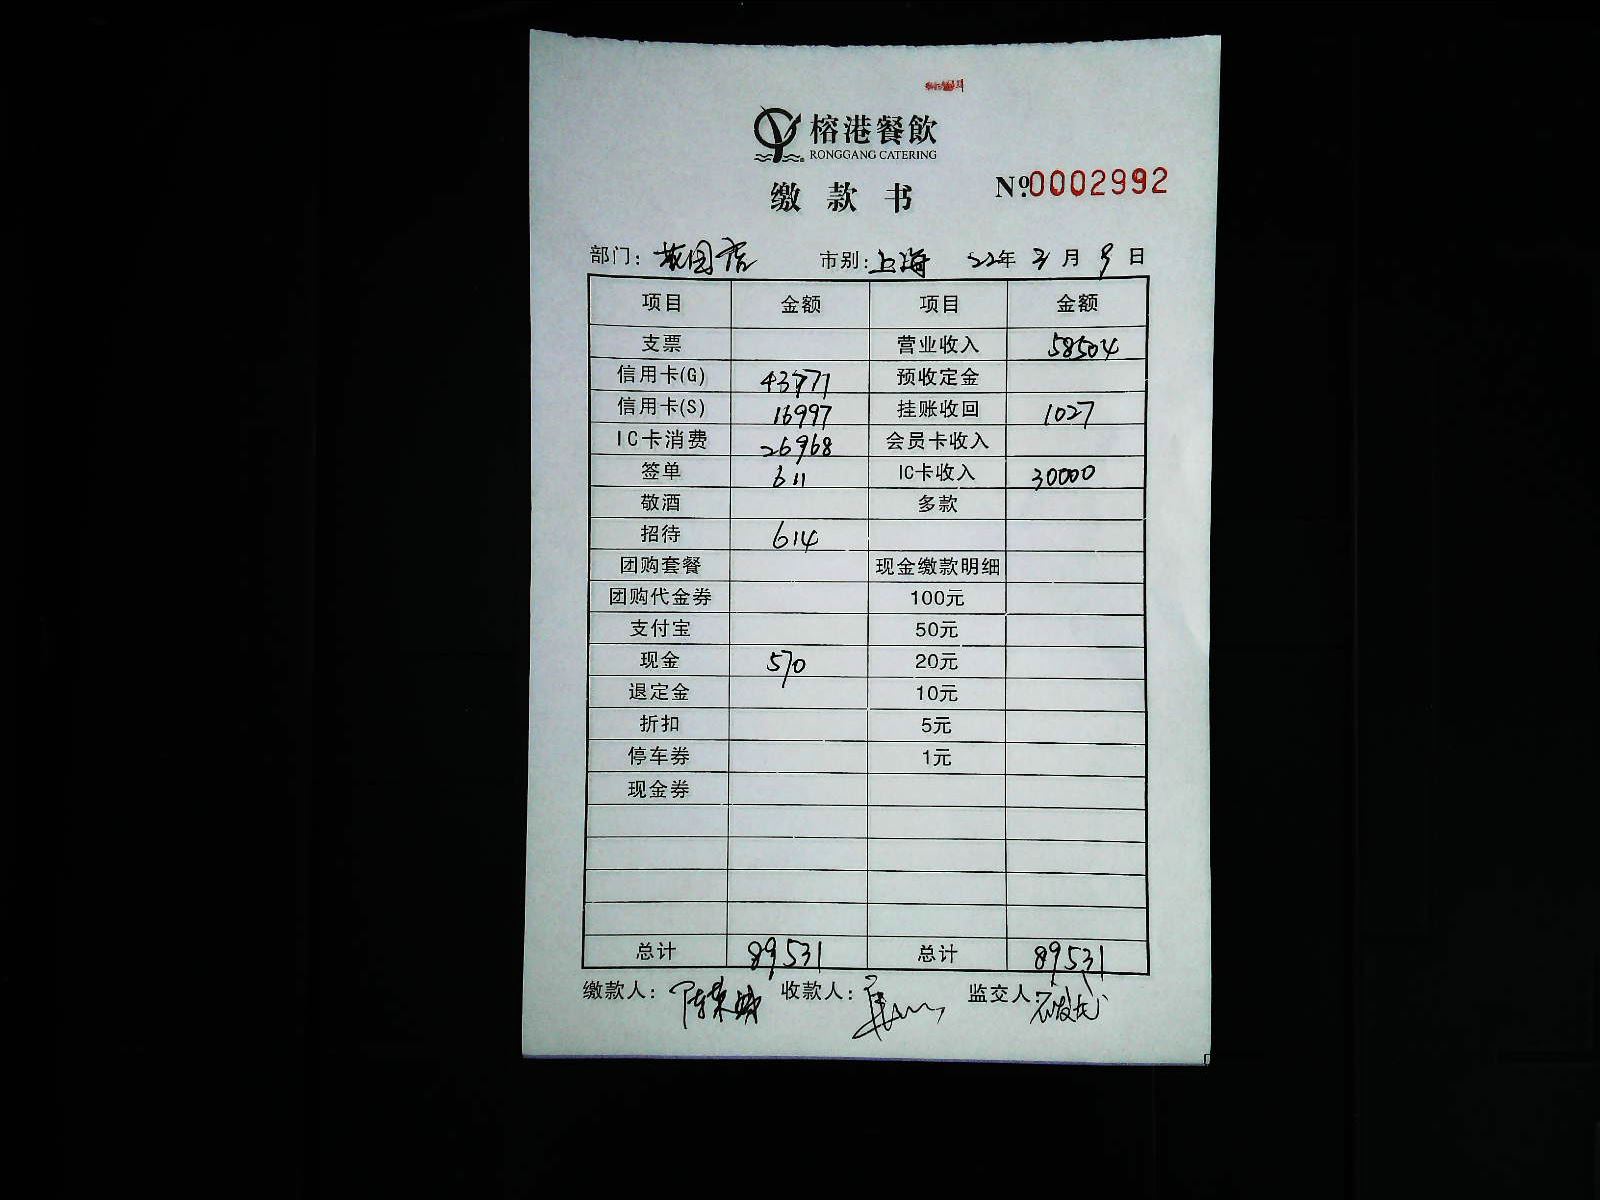 榕港餐飲
RONGGANG CATERING
缴款书
№0002992
部门：花园店 市别：上海 22年3月9日
项目 金额 项目 金额
支票 营业收入 58504
信用卡(G) 43771 预收定金
信用卡(S) 16997 挂账收回 1027
IC卡消费 26968 会员卡收入
签单 611 IC卡收入 30000
敬酒 多款
招待 614
团购套餐 现金缴款明细
团购代金券 100元
支付宝 50元
现金 570 20元
退定金 10元
折扣 5元
停车券 1元
现金券
总计 89531 总计 89531
缴款人： 收款人： 监交人：